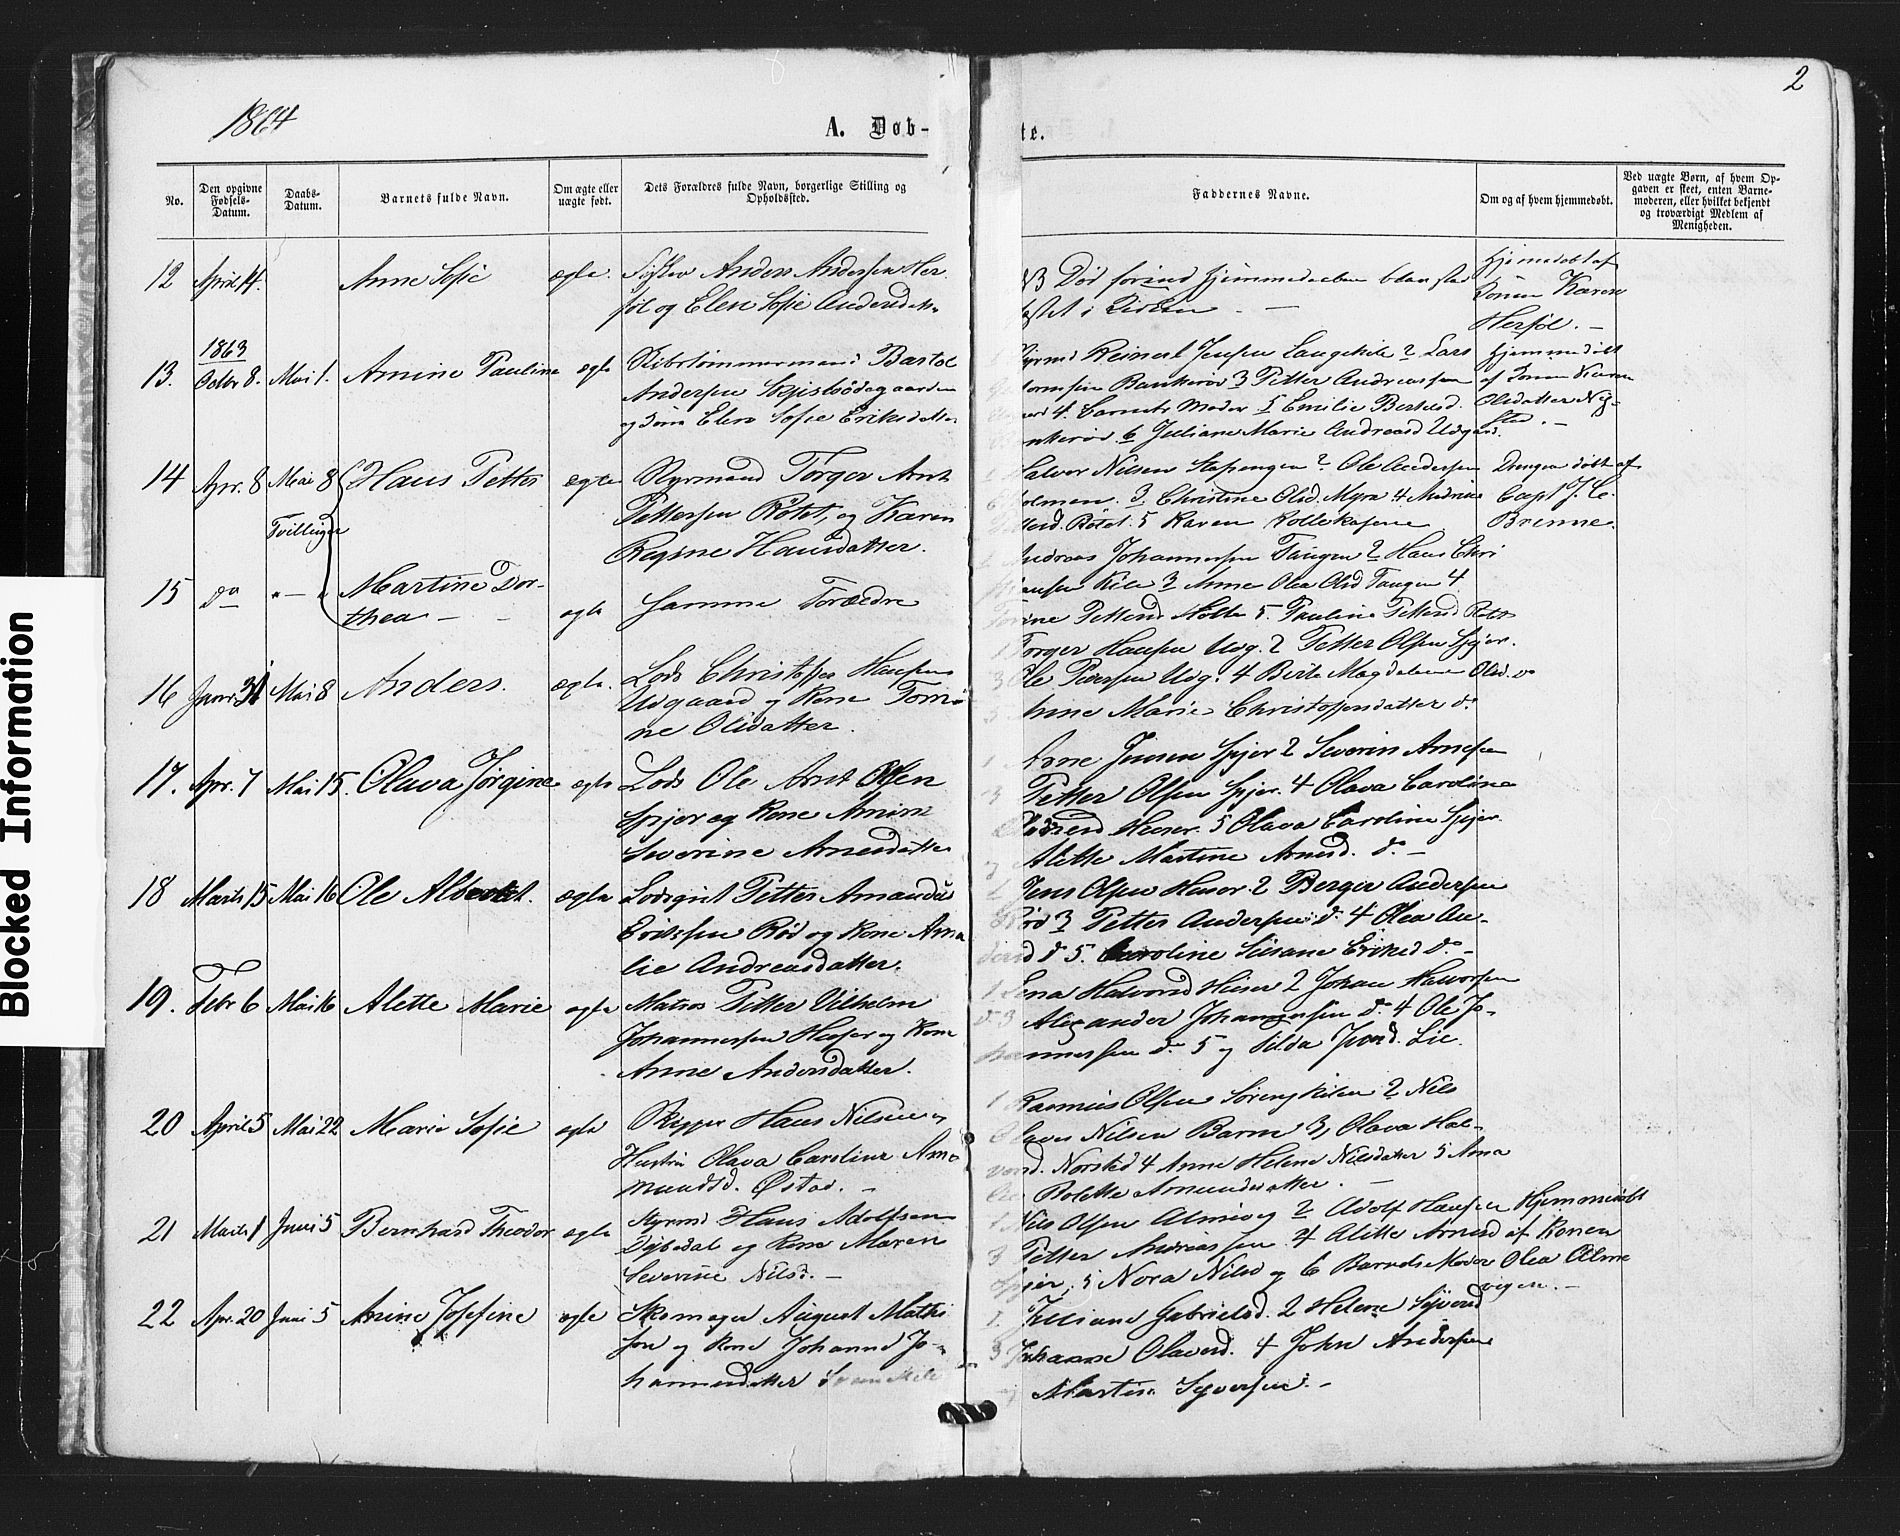 2
1864
A. Døb-
te.
No.
Den opgivne Fødsels-Datum.
Daabs-Datum.
Barnets fulde Navn.
Om ægte eller uægte født.
Dets Forældres fulde Navn, borgerlige Stilling og Opholdssted.
Faddernes Navne.
Om og af hvem hjemmedøbt.
Ved uægte Børn, af hvem Op-
gaven er skeet, enten Barne-
moderen, eller hvilket bekjendt
og troværdigt Medlem af
Menigheden.
12 April 4. Anne Sofie ægte. Anders Andersen Her-
føl og Elen Sofie Andersdatter
Død forind hjemmedaaben
Hjemmedøbt af
Konen Karen
Herføl. -
1863
13. Octbr 8. Mai 1. Amine Pauline ægte Skibstømmermand Bastol
Andersen
og Kone Elen Sofie Eriksdatter
Reinert Jensen Langekile 2 Lars
3 Petter Andreassen
4. Barnets Moder 5 Emilie Bertelsd.
6 Juliane Marie Andreasd Udgaard.
Hjemmedøbt
af Konen Karen
Olsdatter
14 Apr. 8 Mai 8 Hans Petter ægte Styrmand Torger Arnt
Pettersen Rötet, og Karen
Regine Hansdatter.
Halvor Nilsen Stapengen 2 Ole Andersen
Holmen. 3. Christine Olsd. Myra 4 Andrine
Rötet. 5 Karen
Drengen døbt af
Capt J. C.
Brenne.
Tvillinger
15 do " — " Martine Dor-
thea — - ægte Samme Forældre
Andreas Johannessen Tangen 2 Hans Chri
Kile 3 Anne Olea Olsd Tangen 4
Holte 5. Pauline Pettersd Rötet
16 Janr. 31 Mai 8 Anders. ægte. Lods Christoffer Hansen
Udgaard og Kone Tomi-
ne Olsdatter.
1 Torger Hansen Udg. 2 Petter Olsen Spjær.
3 Ole Pettersen Udg. 4 Berte Magdalena Olsd. do
Anne Marie Christoffersdatter do
17. Apr. 7 Mai 15. Olava Jørgine ægte Lods Ole Arnt Olsen
Spjær og Kone Amine
Severine Arnesdatter
1 Arne Jensen Spjær 2 Severin Arnesen
3 Petter Olsen Spjær. 4 Olava Caroline
5 Olava Caroline Spjær.
og Alette Martine Arnesd. do -
18 Marts 15 Mai 16 Ole Albert. ægte Lodsgut Petter Amandus
Eriksen Röd og Kone Ama
lie Andreasdatter.
1 Jens Olsen Huser. 2 Berger Andersen
Röd 3 Petter Andersen do 4 Olea An-
dersd do 5. Caroline Susane Eriksd do -
19. Febr 6 Mai 16 Alette Marie ægte Matros Petter Vilhelm
Johannessen Huser og Kone
Anne Andersdatter.
1 Lena Halvorsd Huser 2 Johan Halvorsen
do 3 Alexander Johannessen do 4 Ole Jo-
hannessen do 5 og Silda Jonsd. Lie.
20 April 5 Mai 22 Marie Sofie ægte Skipper Hans Nilsen og
Hustru Olava Caroline Am-
mundsd. Østad. -
1 Rasmus Olsen Sörengkilen 2 Nils
Olaus Nilsen Barm 3, Olava Hal-
vorsd. Norsted 4 Anne Helene Nilsdatter 5 Anna
Bolette Amundsdatter. -
21 Marts 1 Juni 5 Bernhard Theodor ægte Styrmd Hans Adolfsen
Dybedal og Kone Maren
Severine Nilsd. -
1 Nils Olsen Almevig 2 Adolf Hansen
3 Petter Andreassen 4 Alette Arnesd
Spjær. 5 Nora Nilsd og 6 Barnets Moder
Hjemmedøbt
af Konen
Olea Alme
vigen. -
22 Apr. 20 Juni 5 Anine Josefine ægte Skomager August Mathi
sen og Kone Johanne Jo-
hannesdatter
1. Juliane Gabrielsd. 2 Helene Syversd
3 Johanne Olavesd. 4 John Andersen
og Martin Syversen. -
Blocked Information